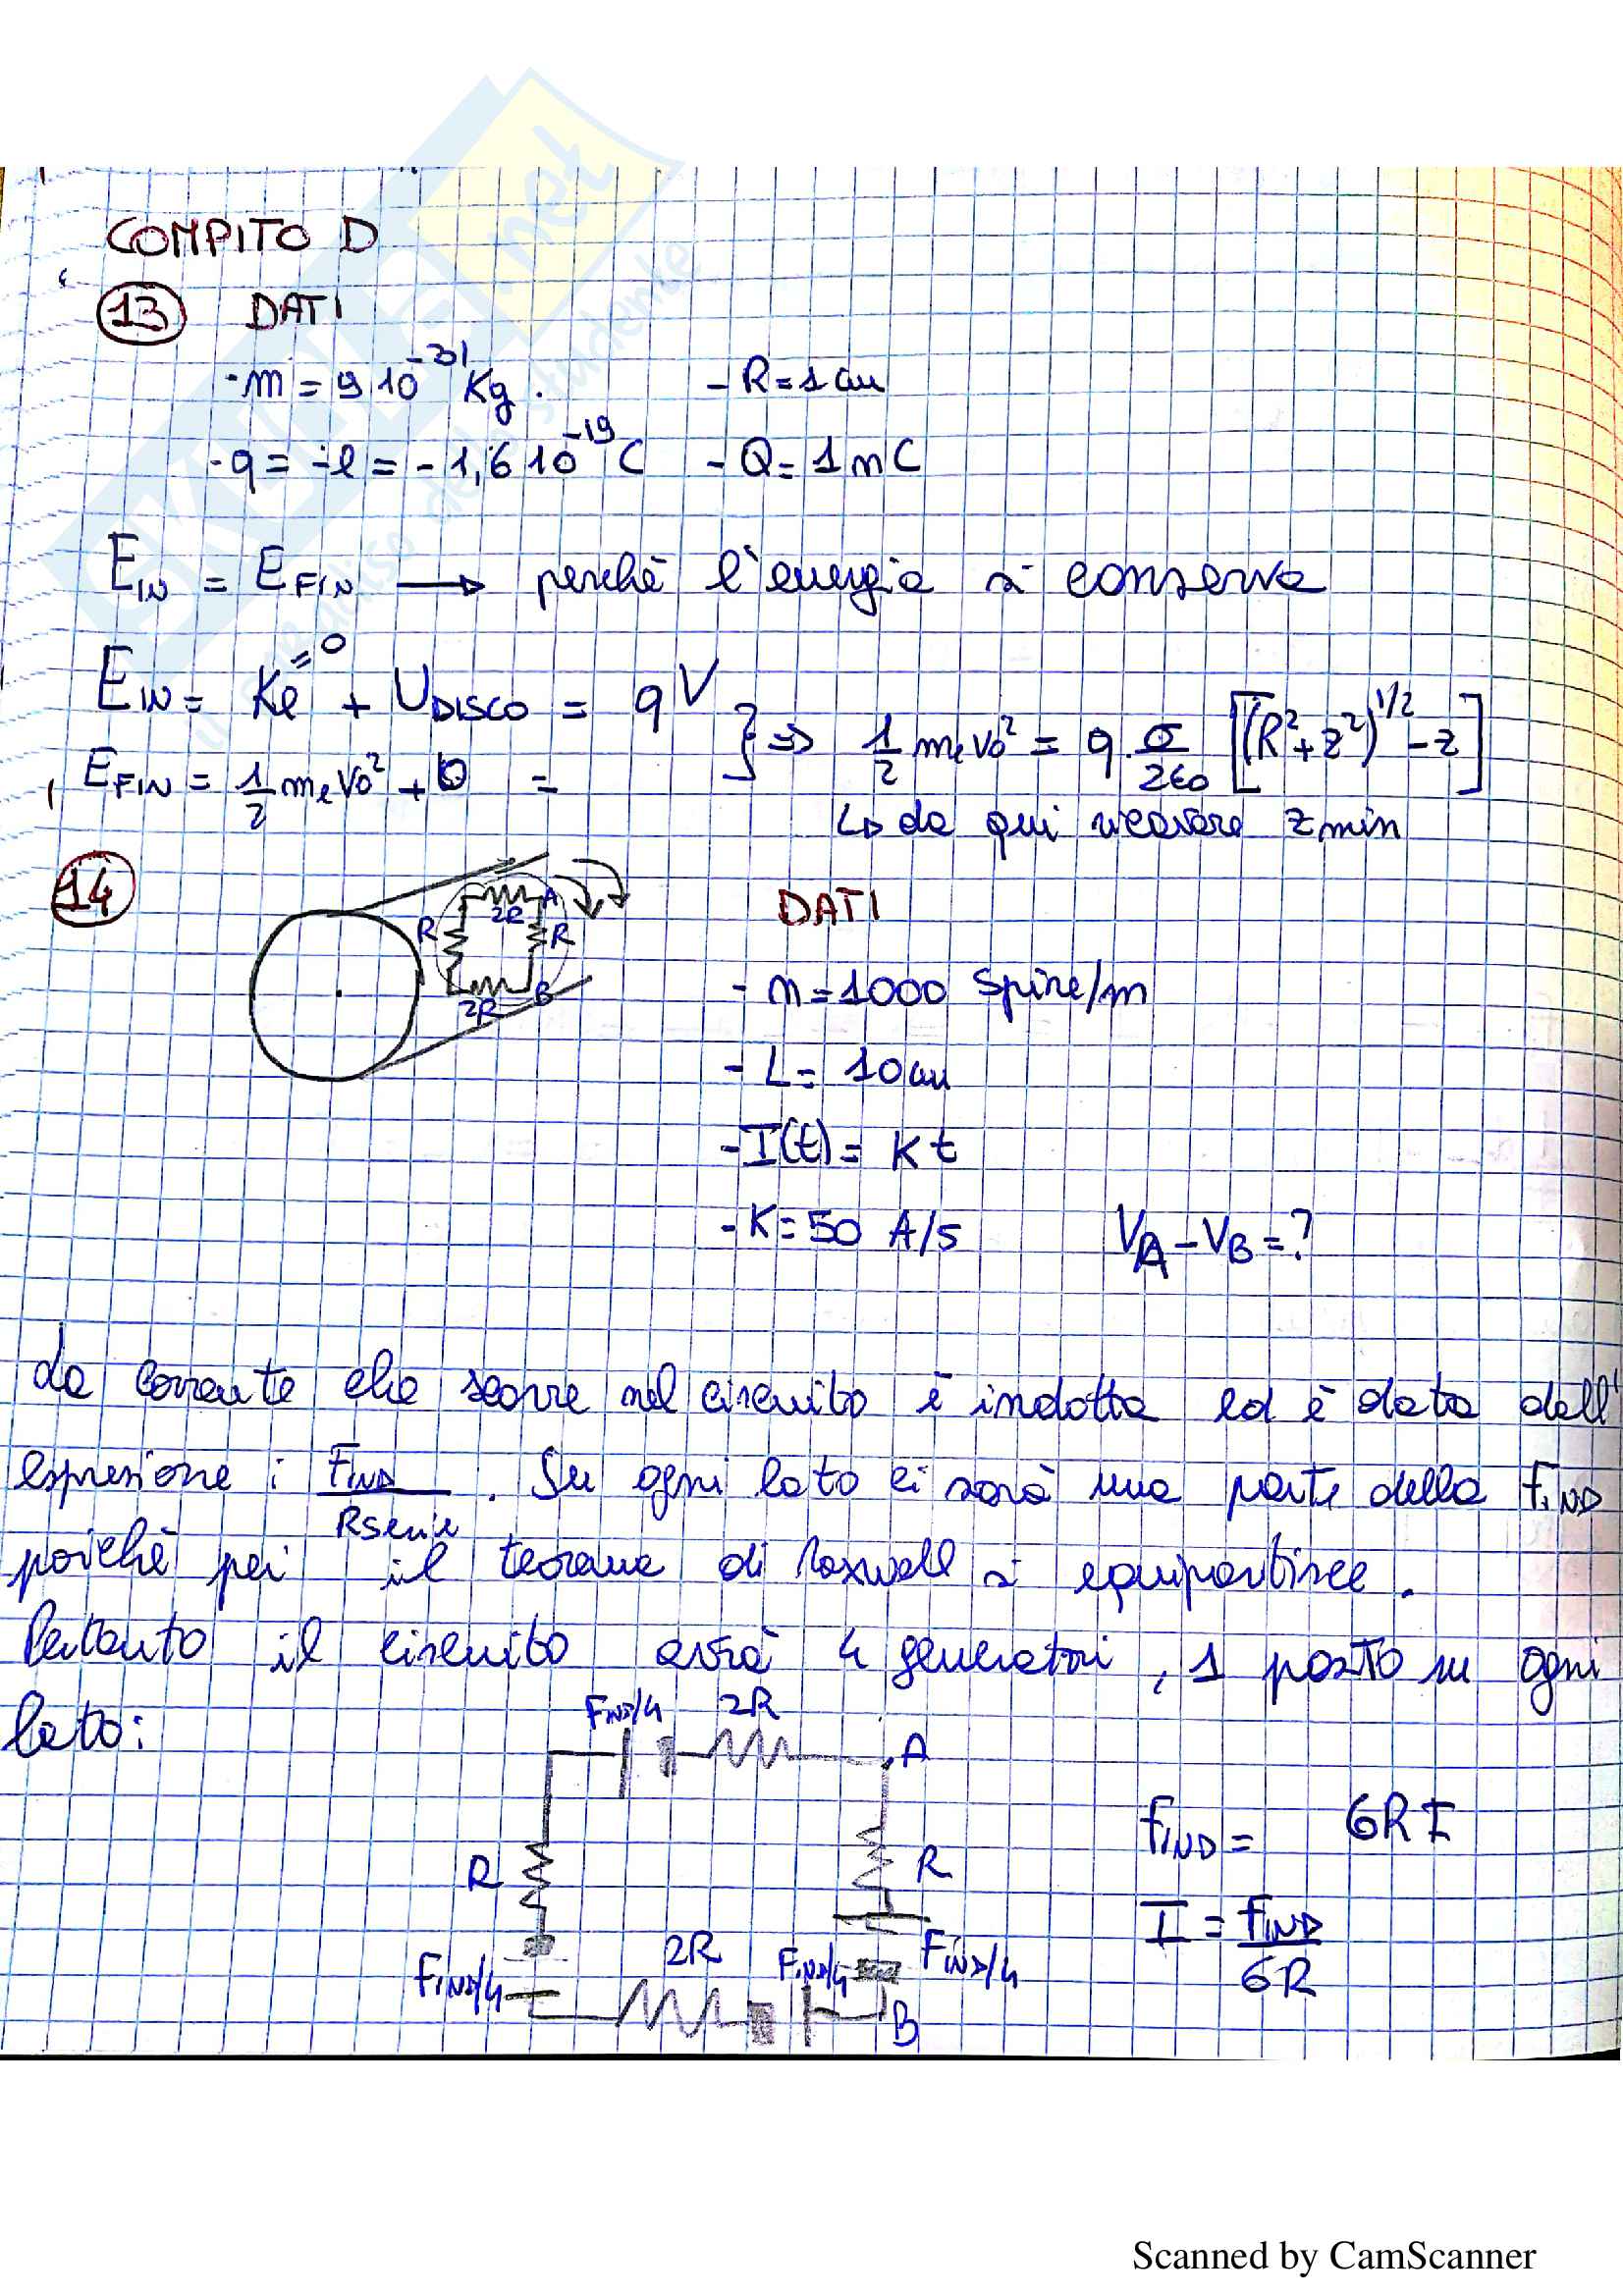 COMPITO D
13 DATI
- m = 9 10^-31 Kg. - R = 1 cm
- q = -e = - 1,6 10^-19 C - Q = 1 mC
E_IN = E_FIN → perchè l'energia si conserva
E_IN = Ke^=0 + U_DISCO = qV
E_FIN = 1/2 m_e v_0^2 + 0 =
} ⇒ 1/2 m_e v_0^2 = q σ/2ε0 [(R^2+z^2)^1/2 - z]
↳ da qui ricavare z min
14
2R A
R R
2R B
DATI
- n = 1000 Spire/m
- L = 10 cm
- I(t) = K t
- K = 50 A/s V_A - V_B = ?
La corrente che scorre nel circuito è indotta ed è data dall'
espressione : F_IND/R serie . Su ogni lato ci sarà una parte della F_IND
poichè per il teorema di Maxwell si equipartisce.
Pertanto il circuito avrà 4 generatori, 1 posto su ogni
lato:
F_IND/4 2R
A
R R
F_IND/4 2R F_IND/4 F_IND/4
B
f_IND = 6RI
I = f_IND/6R
Scanned by CamScanner
SKUOLA.net